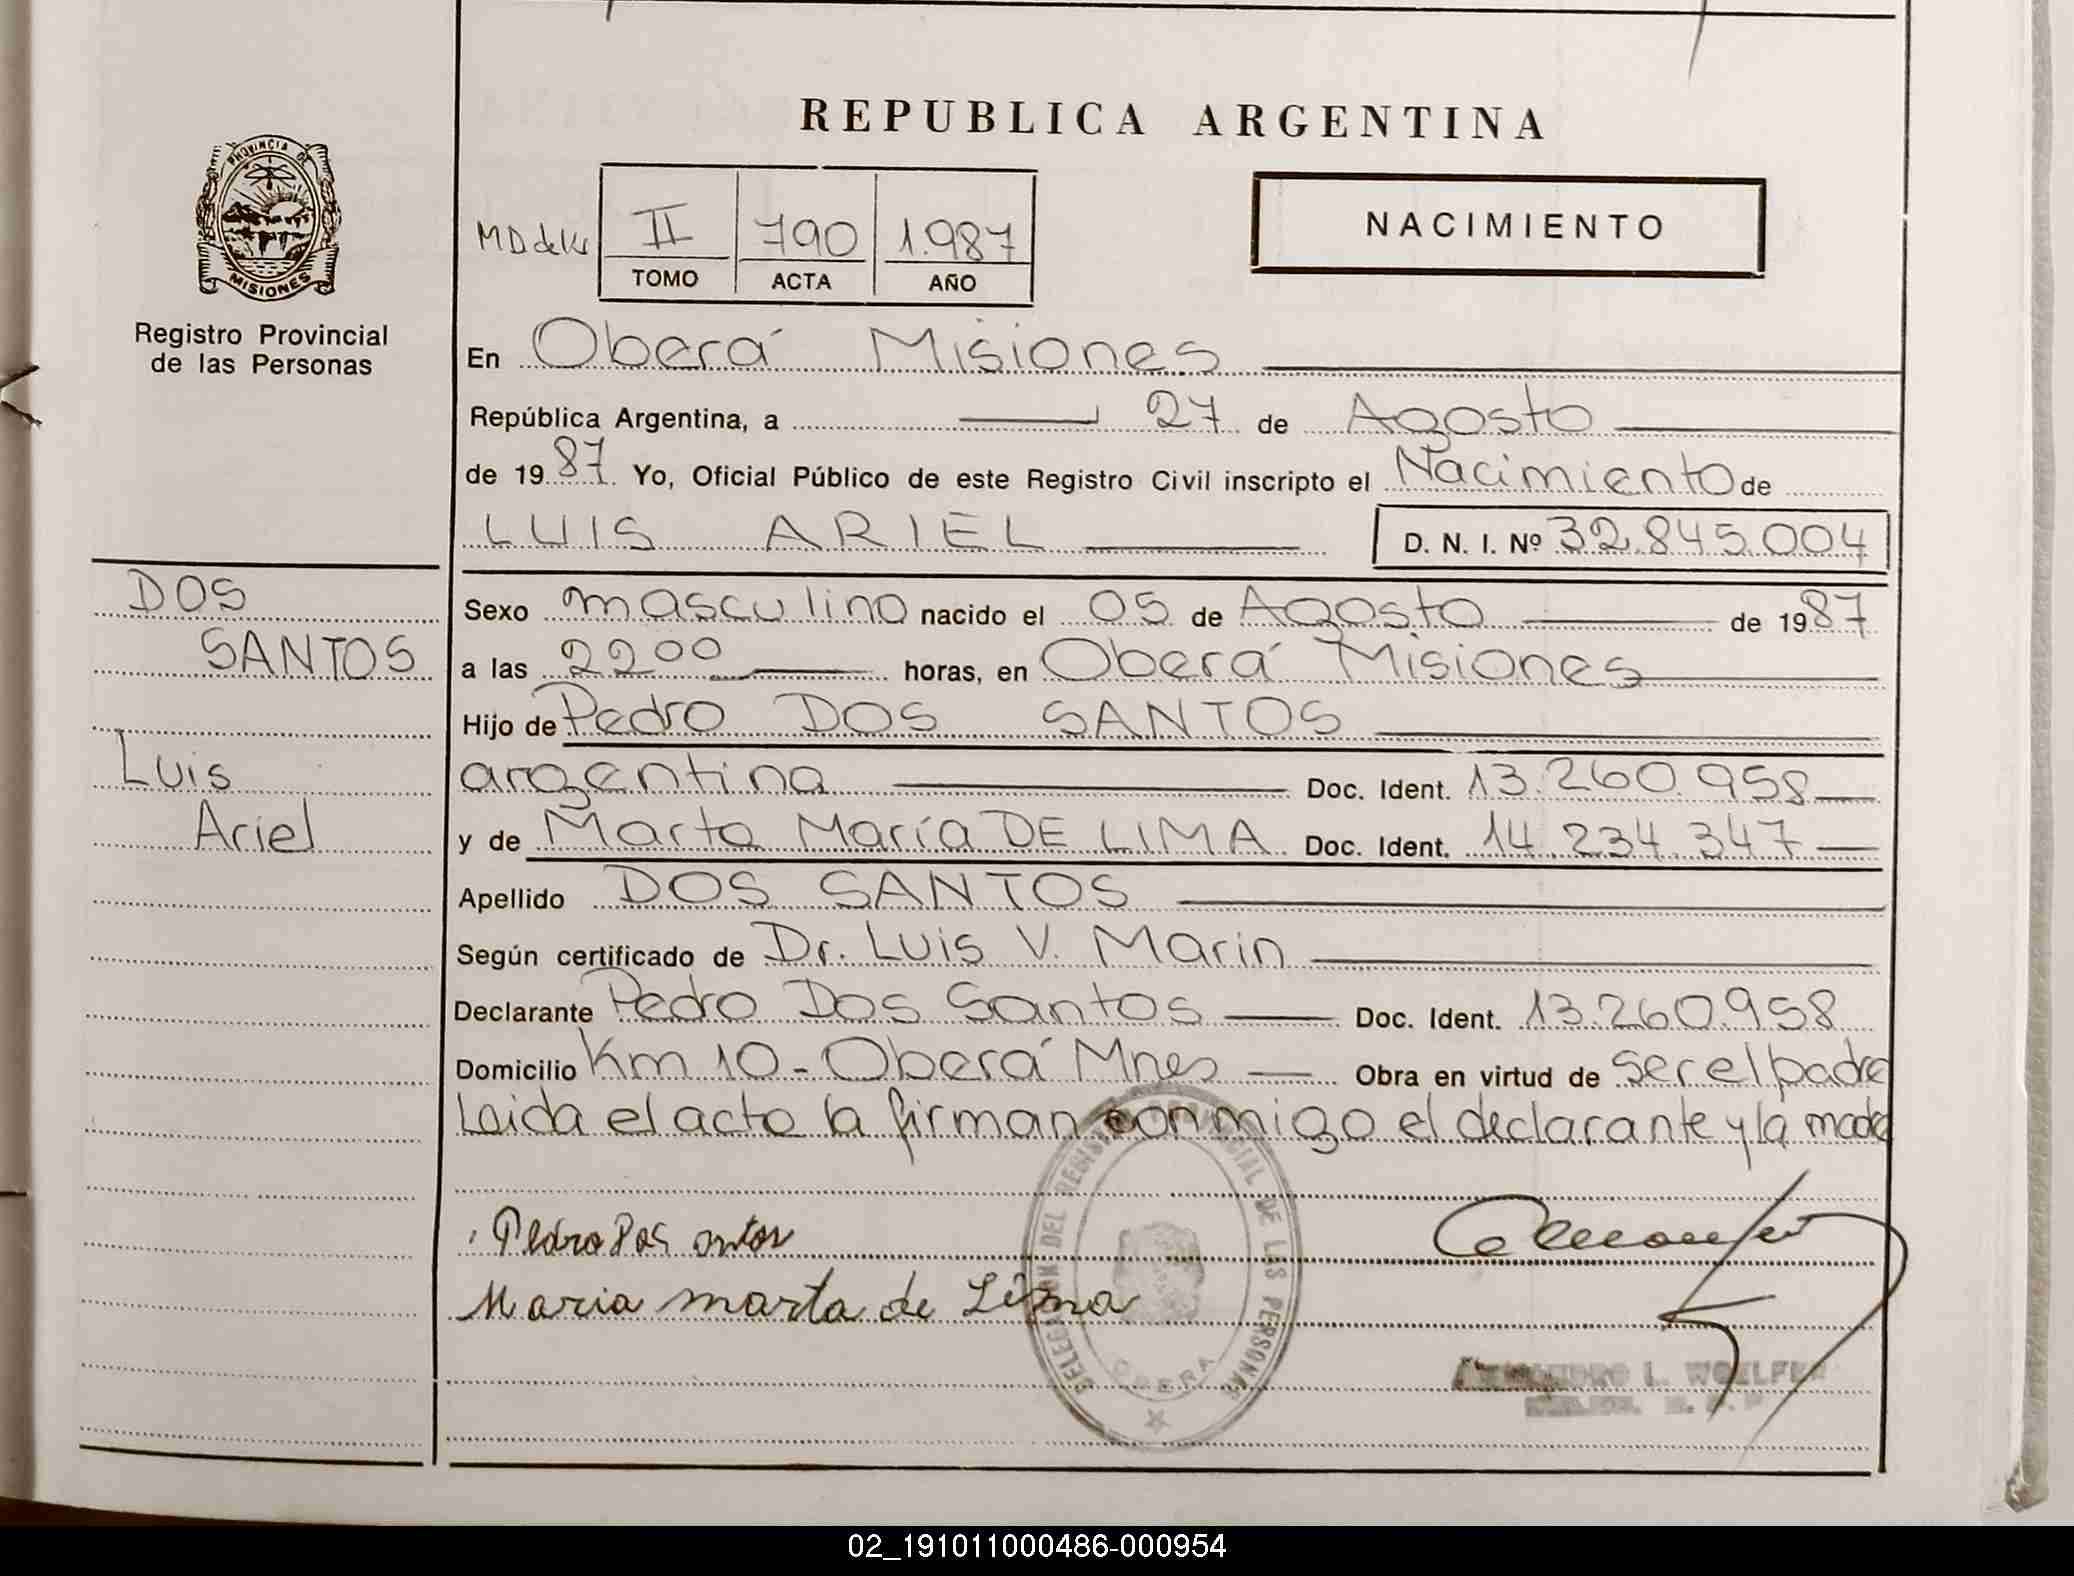 REPUBLICA ARGENTINA
PROVINCIA DE
MISIONES
Registro Provincial
de las Personas
II 790 1.987
TOMO ACTA AÑO
NACIMIENTO
En Oberá Misiones
República Argentina, a 27 de Agosto
de 1987. Yo, Oficial Público de este Registro Civil inscripto el Nacimiento de
LUIS ARIEL D. N. I. Nº 32.845.004
DOS
SANTOS
Luis
Ariel
Sexo masculino nacido el 05 de Agosto de 1987
a las 2200 horas, en Oberá Misiones
Hijo de Pedro DOS SANTOS
argentina Doc. Ident. 13.260.958
y de Marta María DE LIMA Doc. Ident. 14.234.347
Apellido DOS SANTOS
Según certificado de Dr. Luis V. Marin
Declarante Pedro Dos Santos Doc. Ident. 13.260.958
Domicilio Km 10 - Oberá Mnes Obra en virtud de ser el padre
Leida el acta la firman conmigo el declarante y la madre
Pedro Dos
Maria marta de Lima
DEL REGISTRO PROVINCIAL DE LAS PERSONAS
OBERA
L.
02_191011000486-000954